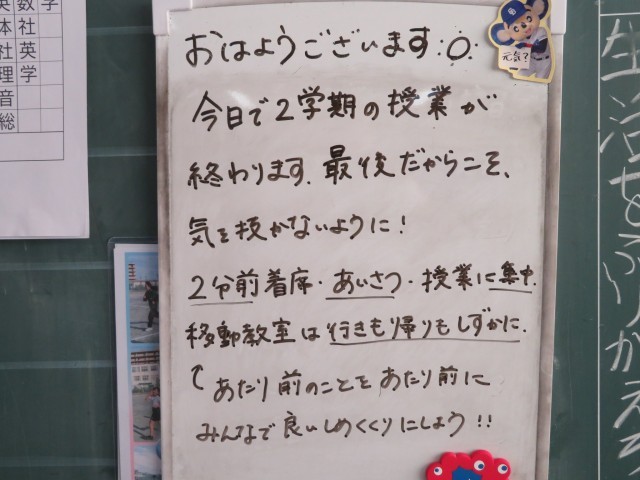 英 数 学
体 社
社 英
理 学
音
総
おはようございます
元気?
今日で2学期の授業が
終わります。最後だからこそ、
気を抜かないように!
2分前着席・あいさつ・授業に集中。
移動教室は行きも帰りもしずかに。
あたり前のことをあたり前に
みんなで良いしめくくりにしよう!!
生活をふりかえろ